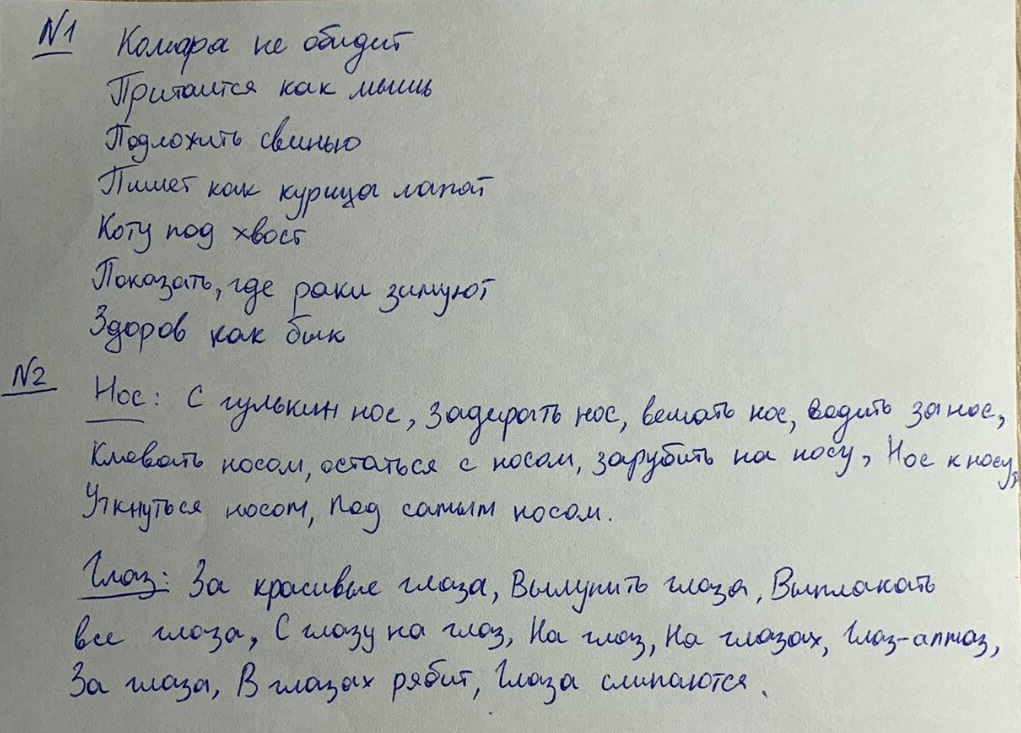 N1 Комара не обидит
Притаится как мышь
Подложить свинью
Пишет как курица лапой
Коту под хвост
Показать, где раки зимуют
Здоров как бык
N2
Нос: С гулькин нос, задирать нос, вешать нос, водить за нос,
Клевать носом, остаться с носом, зарубить на носу, Нос к носу,
Уткнуться носом, под самым носом.
Глаз: За красивые глаза, Вылупить глаза, Выплакать
все глаза, С глазу на глаз, На глаз, На глазах, Глаз-алмаз,
За глаза, В глазах рябит, Глаза слипаются.